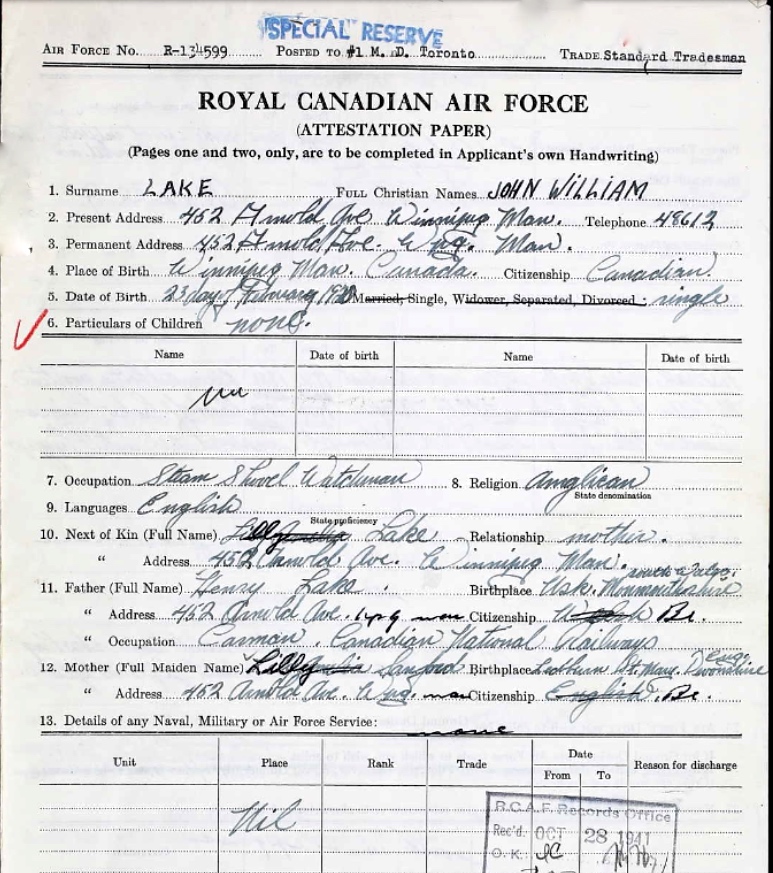 "SPECIAL" RESERVE
AIR FORCE No. R-134599 POSTED TO #1 M. D. Toronto TRADE Standard Tradesman
ROYAL CANADIAN AIR FORCE
(ATTESTATION PAPER)
(Pages one and two, only, are to be completed in Applicant's own Handwriting)
1. Surname LAKE FULL Christian Names JOHN WILLIAM
2. Present Address 452 Arnold Ave Winnipeg Man. Telephone 48612
3. Permanent Address 452 Arnold Ave. Wpg. Man.
4. Place of Birth Winnipeg Man. Canada. Citizenship Canadian.
5. Date of Birth 23 day of February 1920 Married, Single, Widower, Separated, Divorced: single
6. Particulars of Children none.
Name Date of birth Name Date of birth
7. Occupation Steam Shovel Watchman 8. Religion Anglican
State denomination
9. Languages English
State proficiency
10. Next of Kin (Full Name) Lilly Lake Relationship mother.
" Address 452 Arnold Ave. Winnipeg Man.
South Wales.
11. Father (Full Name) Henry Lake. Birthplace Usk. Monmouthshire
" Address 452 Arnold Ave. wpg man Citizenship Welsh Br.
" Occupation Carman. Canadian National Railways
12. Mother (Full Maiden Name) Lilly Sanford Birthplace St. Mary. Devonshire
" Address 452 Arnold Ave. Wpg. man Citizenship English. Br.
13. Details of any Naval, Military or Air Force Service: none
Unit Place Rank Trade Date From To Reason for discharge
Nil
R.C.A.F. Records Office
Rec'd. OCT 28 1941
O.K.